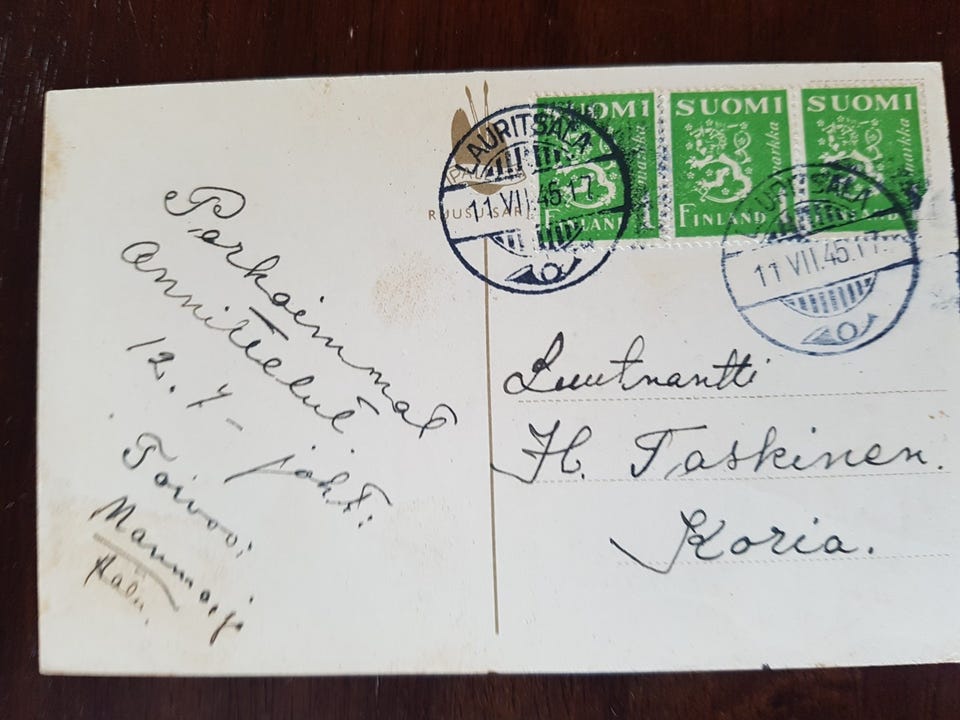 Parhaimmat
onnittelut
12.7 - joht:
Toivoo:
LAURITSALA
11.VII.45.17
SUOMI
markka
FINLAND
SUOMI
markka
FINLAND
SUOMI
markka
FINLAND
LAURITSALA
11 VII.45.17.
Luutnantti
H. Taskinen.
Koria.